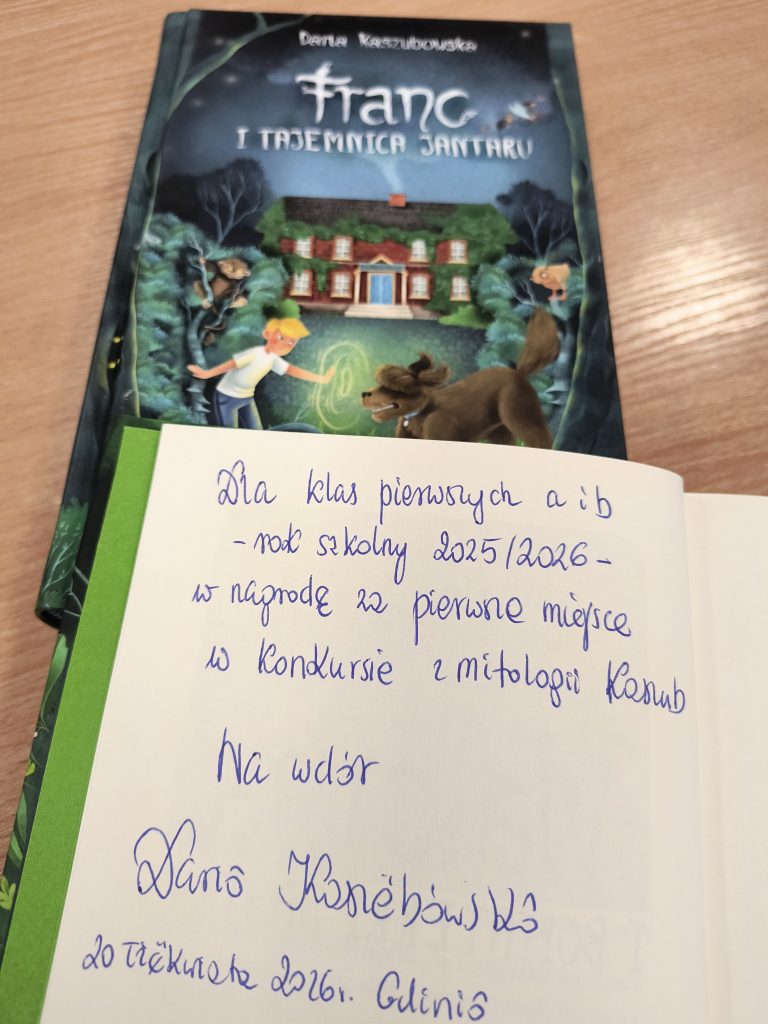 Daria Kaszubowska
Franc
I TAJEMNICA JANTARU
Dla klas pierwszych a i b
- rok szkolny 2025/2026 -
w nagrodę za pierwsze miejsce
w konkursie z mitologii Kaszub
Na wdôr
Dariô Kaszëbówskô
20 łżëkwiata 2026r. Gdiniô